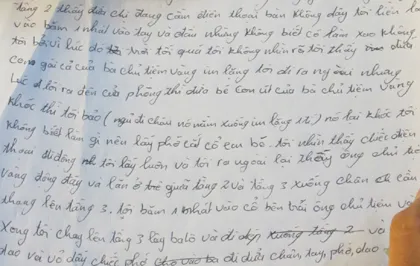 tầng 2 thấy đứa chị đang cầm điện thoại bàn không dây tôi liền
vác bấm 1 nhát vào tay và đầu nhưng không biết có làm sao không
tôi bởi vì lúc do tôi vội tôi quá tôi không nhìn rõ tôi thấy đứa
con gái cả của bà chủ tiệm vàng im lặng tôi đi ra ngoài nhưng
lúc tôi ra đến cửa phòng thì đứa bé con út của bà chủ tiệm vàng
khóc thì tôi bảo (người cháu nó nằm xuống im lặng) nó lại khóc tôi
không biết làm gì nên lấy phớ cắt cổ em bé. tôi nhìn thấy chiếc điện
thoại di động tôi lấy luôn và tôi ra ngoài lại thấy ông chủ tiệm
vàng đứng dậy và lăn ở giữa tầng 2 và tầng 3 xuống chân cầu
thang lên tầng 3. tôi bấm 1 nhát vào cổ bên bắn ông chủ tiệm và
xong tôi chạy lên tầng 3 lấy balô và đi xuống tầng 2 và
dao và vỏ đấy chiếc phớ đi dưới chân, tay, phớ, dao